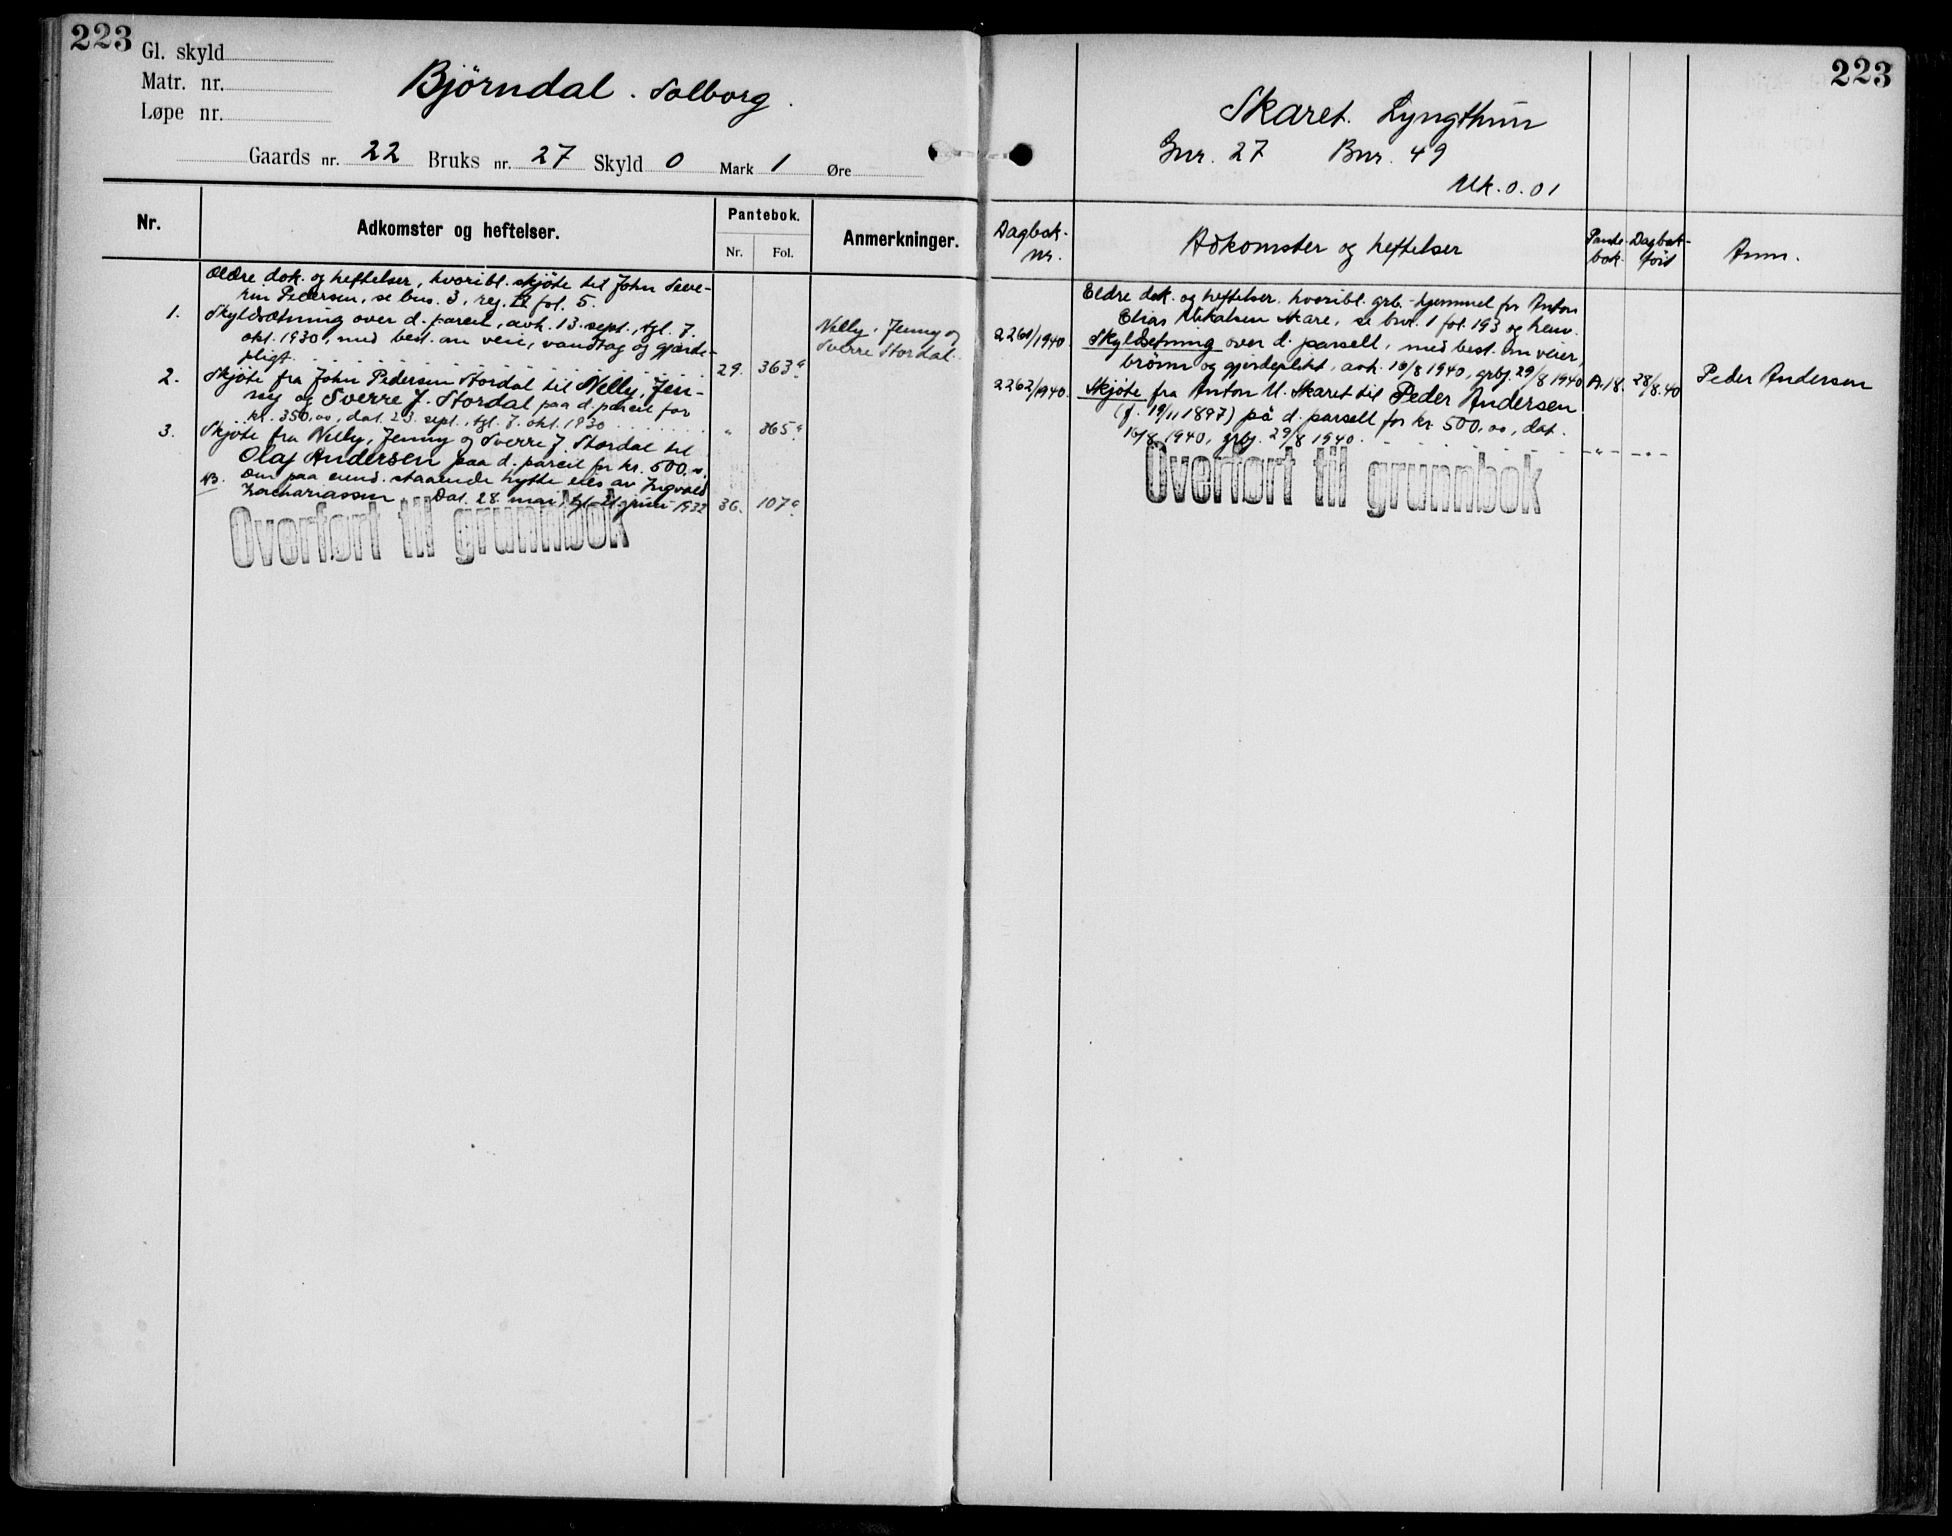 223
Gl. skyld
Matr. nr.
Løpe nr.
Bjørndal. Solborg.
Gaards nr. 22 Bruks nr. 27 Skyld 0 Mark 1 Øre
Nr. Adkomster og heftelser. Pantebok. Anmerkninger.
Nr. Fol.
Ældre dok. og heftelser, hvoribl. skjøte til John Seve-
rin Pedersen, se bnr. 3, reg. II fol. 5.
1. Skyldsætning over d. parcel, avh. 13. sept., tgl. 7.
okt. 1930, med best. om veie, vandtag og gjærde-
pligt. 29. 363a
Nelly, Jenny og
Sverre Stordal.
2. Skjøte fra John Pedersen Stordal til Nelly, Jen-
ny og Sverre J. Stordal paa d. parcel for
kr. 350,00, dat. 23. sept., tgl. 7. okt. 1930 " 365a
3. Skjøte fra Nelly, Jenny og Sverre J. Stordal til
Olaf Andersen paa d. parcel for kr. 500,00.
NB. Den paa eiend. staaende hytte eies av Ingvald
Zachariassen Dat. 28. mai, tgl. juni 1932 36. 107a
Overført til grunnbok
223
Skaret. Lyngthun
Gnr. 27 Bnr. 49
Mk. 0.01
Dagbok-
nr.
Adkomster og heftelser
Pante-
bok
Dagbok-
ført
Anm.
Eldre dok. og heftelser. hvoribl. grb.-hjemmel for Anton
Elias Mikalsen Skare, se bnr. 1 fol. 193 og henv.
2261/1940 Skyldsetning over d. parsell, med best. om veier,
brønn og gjerdeplikt, avh. 16/8 1940, grbf. 29/8 1940 A.18. 28/8.40
2262/1940. Skjøte fra Anton M. Skaret til Peder Andersen
(f. 19/11 1897) på d. parsell for kr. 500,00, dat.
16/8 1940, grbf. 29/8 1940. - " - - " -
Peder Andersen
Overført til grunnbok